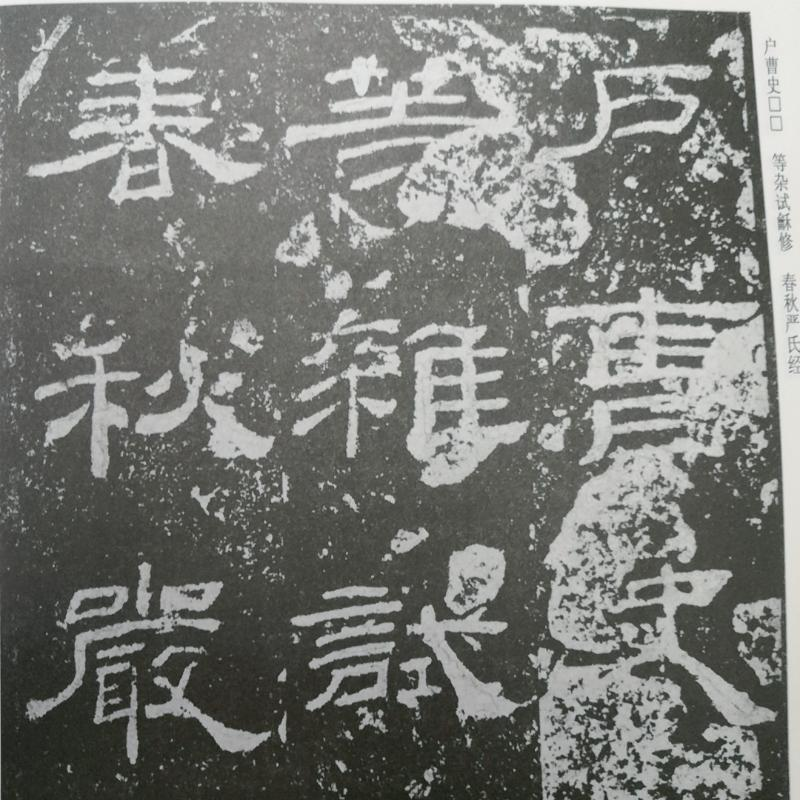 户曹史
等雜試
春秋嚴
户曹史□□ 等杂试龢修 春秋严氏经